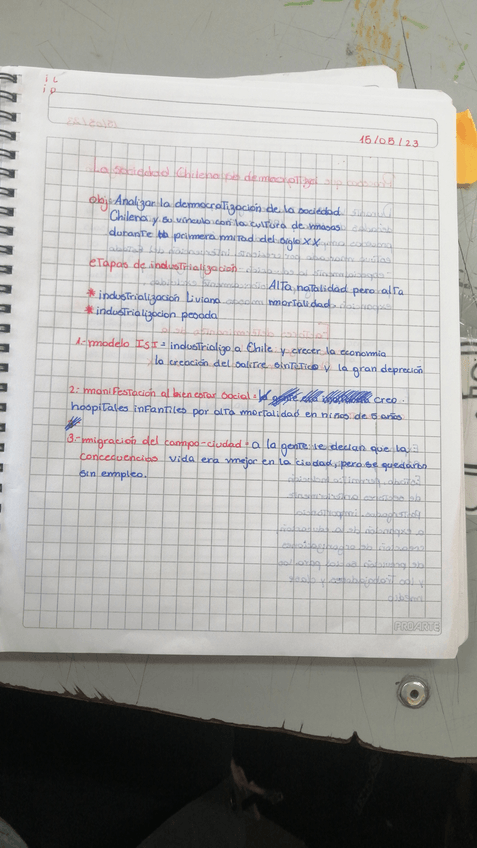 15/05/23
La sociedad Chilena se democratiza
obj: Analizar la democratización de la sociedad
Chilena y su vínculo con la cultura de masas
durante la primera mitad del siglo XX
eTapas de industrialización
AlTa natalidad pero alTa
* indusTrialización Liviana mortalidad
* indusTrialización pesada
1.- modelo IsI = industrializo a Chile y crecer la economía
la creación del salitre sintetico y la gran depreción
2: maniFestación al bien estar social = creo
hospitales inFantiles por alTa mortalidad en niños de 5 años
3.-migración del campo-ciudad = a la gente se decian que la
concecuencias vida era mejor en la ciudad, pero se quedaron
sin empleo.
PROARTE